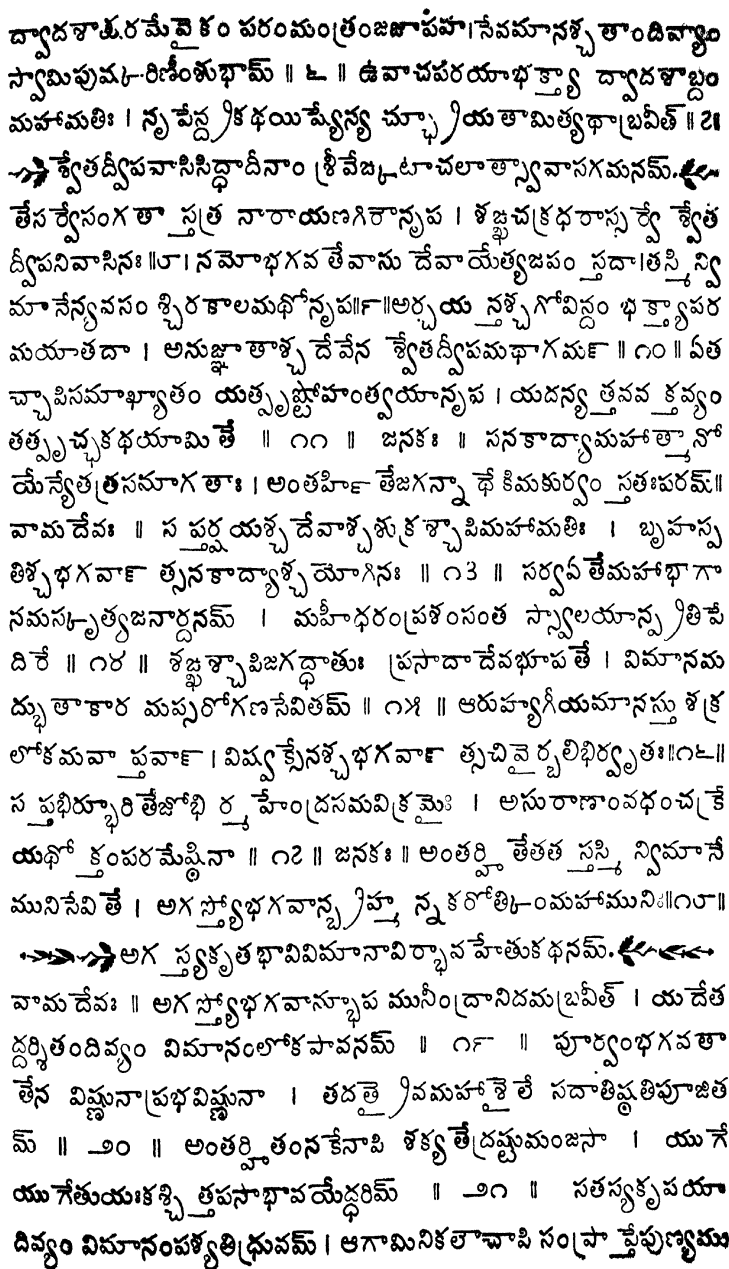 ద్వాదశాక్షరమేవైకం పరంమంత్రంజజాపహ। సేవమానశ్చ తాందివ్యాం
స్వామిపుష్కరిణీంశుభామ్ ॥ ౬ ॥ ఉవాచపరయాభక్త్యా ద్వాదశాబ్దం
మహామతిః । నృపేన్ద్ర కథయిష్యేన్య చ్ఛ్రూయతామిత్యథాబ్రవీత్ ॥ ౭॥
శ్వేతద్వీపవాసిసిద్ధాదీనాం శ్రీవేఙ్కటాచలాత్స్వావాసగమనమ్.
తేసర్వేసంగతా స్తత్ర నారాయణగిరౌనృప । శఙ్ఖచక్రధరాస్సర్వే శ్వేత
ద్వీపనివాసినః ॥౮। నమోభగవ తేవాసు దేవాయేత్యజపం స్తదా।తస్మి న్వి
మానేన్యవసం శ్చిరకాలమథోనృప॥౯॥అర్చయ న్తశ్చగోవిన్దం భక్త్యాపర
మయాతదా । అనుజ్ఞాతాశ్చ దేవేన శ్వేతద్వీపమథాగమ౯ ॥ ౧౦॥ ఏత
చ్చాపిసమాఖ్యాతం యత్పృష్టోహంత్వయానృప । యదన్య త్తవవ క్తవ్యం
తత్పృచ్ఛకథయామి తే ॥ ౧౧ ॥ జనకః ॥ సనకాద్యామహాత్మానో
యేన్యేతత్రసమాగతాః । అంతర్హి తేజగన్నా థే కిమకుర్వం స్తతఃపరమ్॥
వామదేవః ॥ స ప్తర్షయశ్చ దేవాశ్చశుక్రశ్చాపిమహామతిః । బృహస్ప
తిశ్చభగవా౯ త్సనకాద్యాశ్చ యోగినః ॥ ౧౩ ॥ సర్వఏతేమహాభాగా
నమస్కృత్యజనార్దనమ్ । మహీధరంప్రశంసంత స్స్వాలయాన్ప్రతిపే
దిరే ॥ ౧౪ ॥ శఙ్ఖశ్చాపిజగద్ధాతుః ప్రసాదాదేవభూపతే । విమానమ
ద్భుతాకార మప్సరోగణసేవితమ్ ॥ ౧౫ ॥ ఆరుహ్యగీయమానస్తు శక్ర
లోకమవా ప్తవా౯ । విష్వక్సేనశ్చభగవా౯ త్సచివైర్బలిభిర్వృతః॥౧౬॥
స ప్తభిర్భూరితేజోభి ర్మ హేంద్రసమవిక్రమైః । అసురాణాంవధంచక్రే
యథో క్తంపరమేష్ఠినా ॥ ౧౭ ॥ జనకః ॥ అంతర్హి తేతత స్తస్మి న్విమానే
మునిసేవితే । అగస్త్యోభగవాన్బ్రహ్మ న్నకరోత్కింమహామునిః॥౧౮॥
అగ స్త్యకృతభావివిమానావిర్భావ హేతుకథనమ్.
వామదేవః ॥ అగస్త్యోభగవాన్భూప మునీంద్రానిదమబ్రవీత్ । యదేత
ద్దర్శితందివ్యం విమానంలోకపావనమ్ ॥ ౧౯ ॥ పూర్వంభగవతా
తేన విష్ణునాప్రభవిష్ణునా । తదత్రైవమహాశైలే సదాతిష్ఠతిపూజిత
మ్ ॥ ౨౦ ॥ అంతర్హితంనకేనాపి శక్యతేద్రష్టుమంజసా । యుగే
యుగేతుయఃకశ్చి త్తపసాభావయేద్ధరిమ్ ॥ ౨౧ ॥ సతస్యకృపయా
దివ్యం విమానంపశ్యతిధ్రువమ్ । ఆగామినికలౌచాపి సంప్రాప్తేపుణ్యము